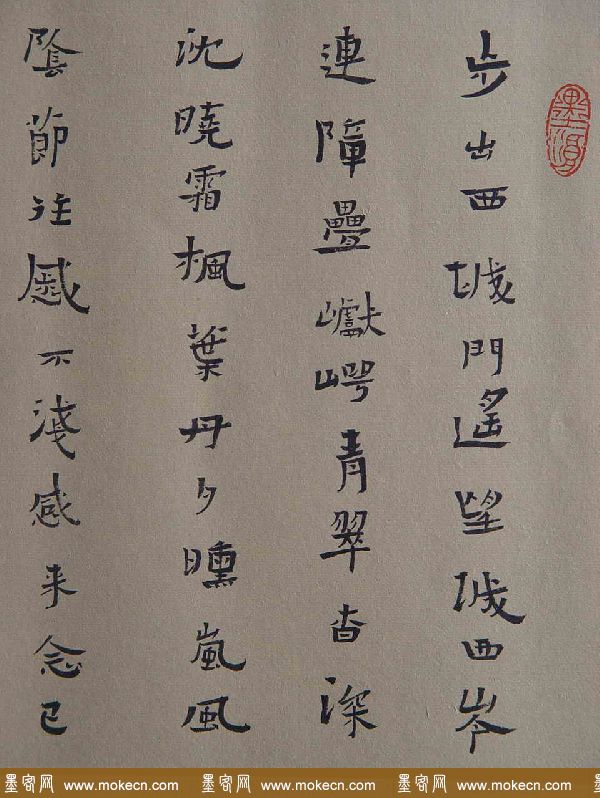 步出西城門遙望城西岑
連障疊巘崿青翠杳深
沈曉霜楓葉丹夕曛嵐風
陰節往慼不淺感来念已
墨客网 www.mokecn.com 墨客网 www.mokecn.com 墨客网 www.mokecn.com